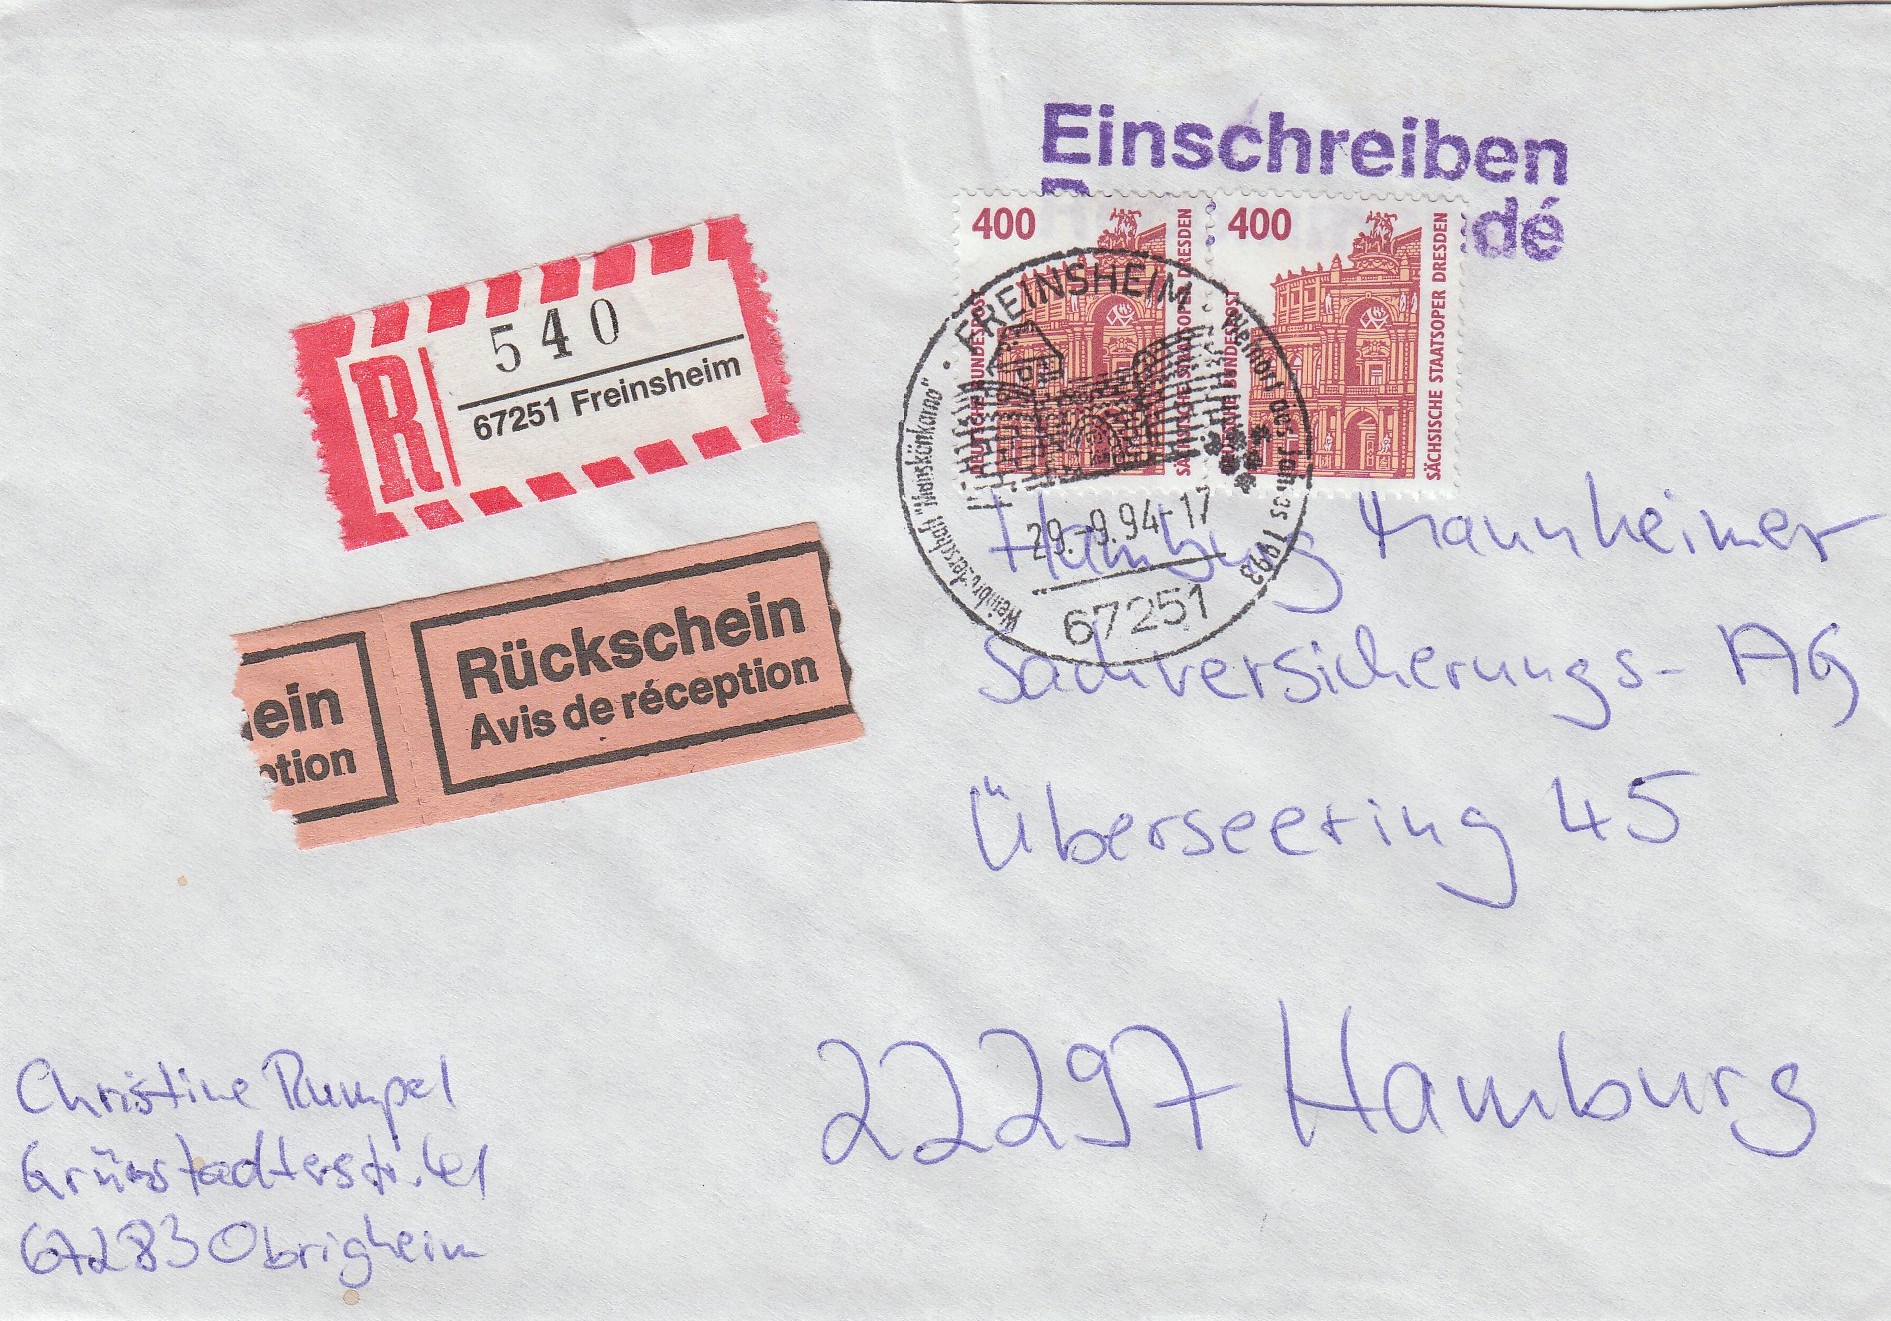 Einschreiben
dé
400
400
DEUTSCHE BUNDESPOST
SÄCHSISCHE STAATSOPER DRESDEN
DEUTSCHE BUNDESPOST
SÄCHSISCHE STAATSOPER DRESDEN
FREINSHEIM
Weinort des Jahres 1993
Weinbruderschaft
29.-9.94-17
67251
R
540
67251 Freinsheim
ein
ption
Rückschein
Avis de réception
Hamburg Mannheimer
Sachversicherungs-AG
Überseering 45
22297 Hamburg
Christine Rumpel
Grünstadterstr. 41
67283 Obrigheim